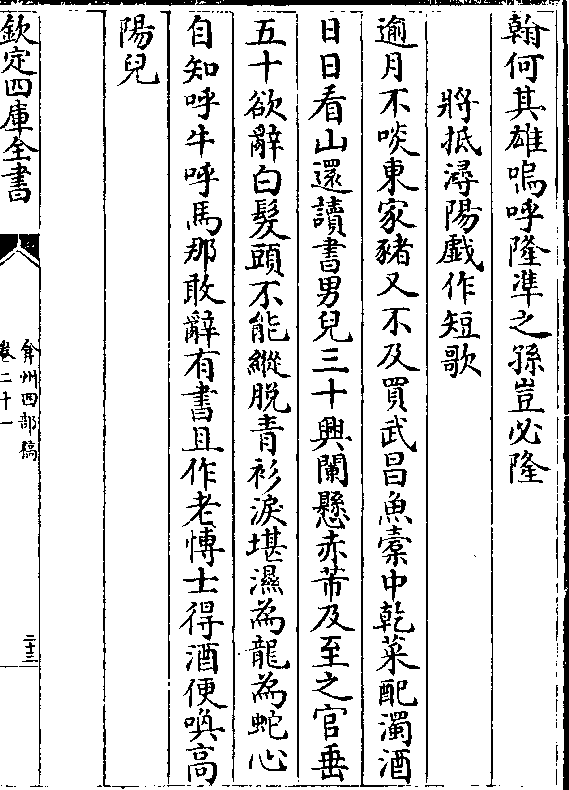 翰何其雄嗚呼隆準之孫豈必隆
將抵潯陽戲作短歌
逾月不啖東家豬又不及買武昌魚橐中乾菜配濁酒
日日看山還讀書男兒三十興闌懸赤芾及至之官垂
五十欲辭白髮頭不能縱脱青衫淚堪濕為龍為蛇心
自知呼牛呼馬那敢辭有書且作老博士得酒便喚高
陽兒
欽定四庫全書
弇州四部稿
卷二十一
二十三